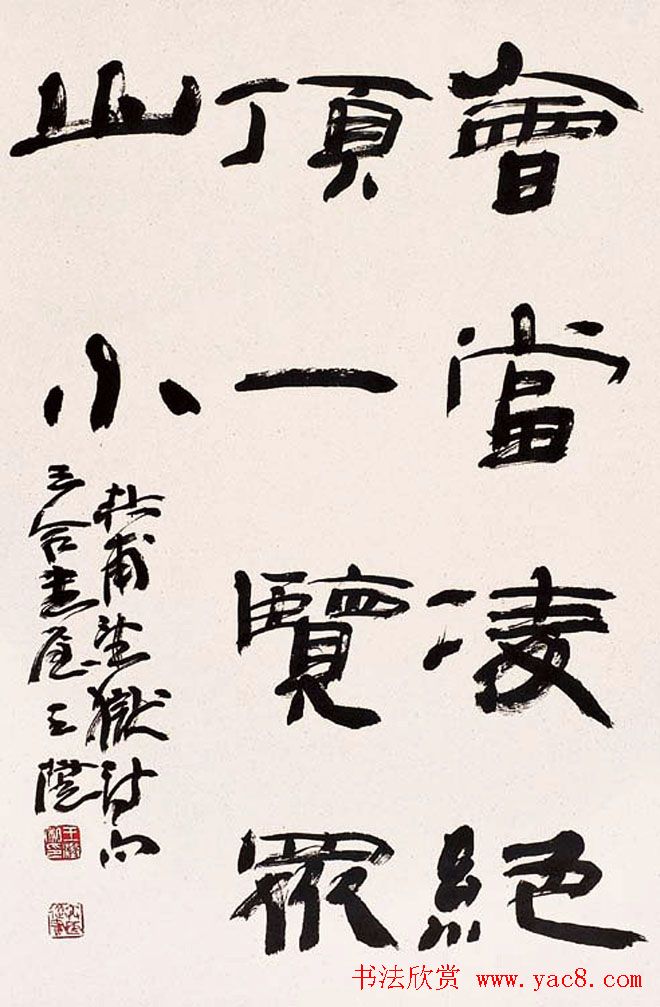 會當凌絕
頂一覽眾
山小
杜甫望嶽詩句
三合書屋王鏞
书法欣赏 www.yac8.com